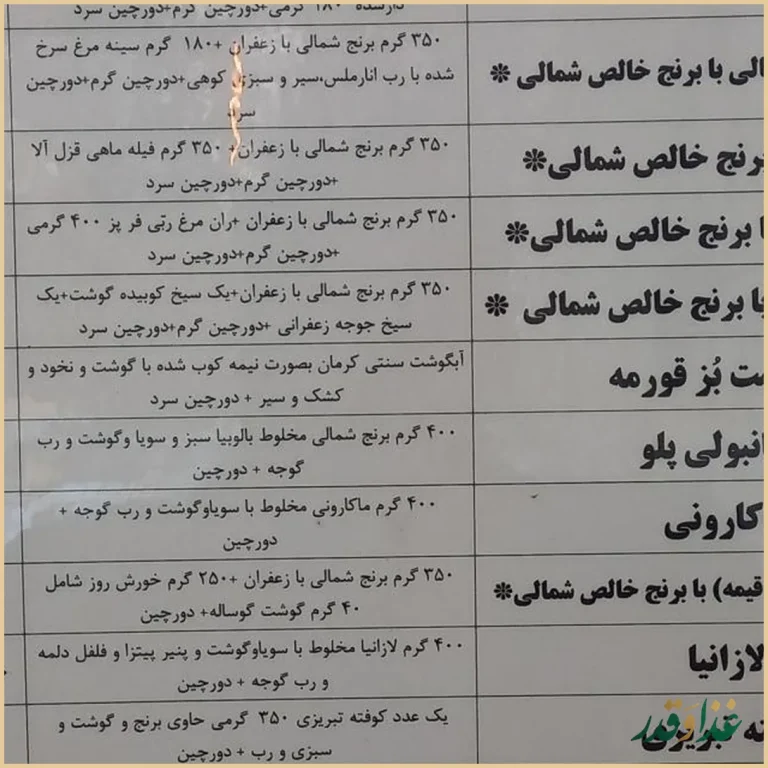 ۱۸۰ گرمی+دورچین گرم+دورچین سرد
با برنج خالص شمالی *
۳۵۰ گرم برنج شمالی با زعفران +۱۸۰ گرم سینه مرغ سرخ
شده با رب انارملس،سیر و سبزی کوهی+دورچین گرم+دورچین
سرد
برنج خالص شمالی*
۳۵۰ گرم برنج شمالی با زعفران+ ۳۵۰ گرم فیله ماهی قزل آلا
+دورچین گرم+دورچین سرد
برنج خالص شمالی*
۳۵۰ گرم برنج شمالی با زعفران +ران مرغ ربّی فر پز ۴۰۰ گرمی
+دورچین گرم+دورچین سرد
با برنج خالص شمالی *
۳۵۰ گرم برنج شمالی با زعفران+یک سیخ کوبیده گوشت+یک
سیخ جوجه زعفرانی +دورچین گرم+دورچین سرد
بُز قورمه
آبگوشت سنتی کرمان بصورت نیمه کوب شده با گوشت و نخود و
کشک و سیر + دورچین سرد
نبولی پلو
۴۰۰ گرم برنج شمالی مخلوط بالوبیا سبز و سویا وگوشت و رب
گوجه + دورچین
کارونی
۴۰۰ گرم ماکارونی مخلوط با سویاوگوشت و رب گوجه +
دورچین
قیمه) با برنج خالص شمالی*
۳۵۰ گرم برنج شمالی با زعفران +۲۵۰ گرم خورش روز شامل
۴۰ گرم گوشت گوساله+ دورچین
لازانیا
۴۰۰ گرم لازانیا مخلوط با سویاوگوشت و پنیر پیتزا و فلفل دلمه
و رب گوجه + دورچین
تبریزی
یک عدد کوفته تبریزی ۳۵۰ گرمی حاوی برنج و گوشت و
سبزی و رب + دورچین
غذا و قدر